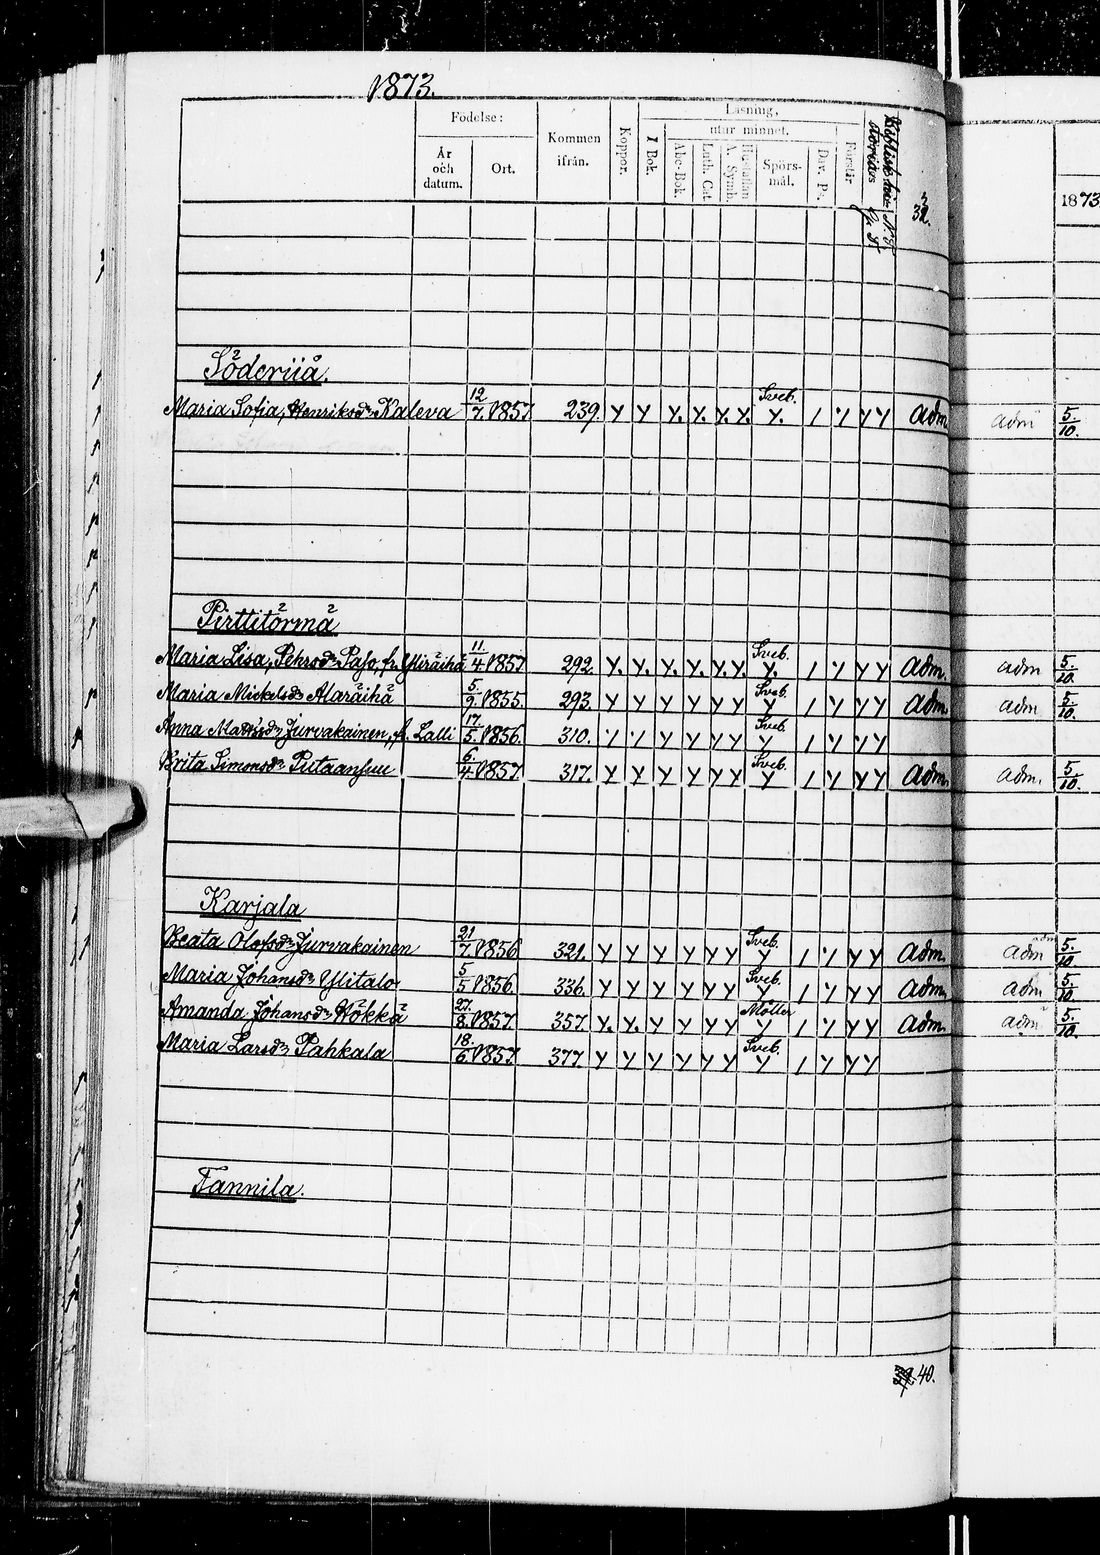 1873.
Födelse: Kommen ifrån. Koppor. Läsning, I Bok. utur minnet. Abc-Bok. Luth. Cat. Hustaflan A. Symb. Spörsmål. Dav. Ps. Förstår
År och datum. Ort.
1873
Söderiiå.
Maria Sofia, Henriksdr Kaleva 12/7. 1857 239. Sveb. adm adm 5/10.
Pirttitörmä
Maria Lisa, Pehrsdr Paso, fr. Yliräihä 11./4. 1857 292. Sveb. adm. adm 5./10.
Maria Mickelsdr Alaräihä 5./9. 1855. 293. Sveb. adm. adm. 5/10.
Anna Mattsdr Jurvakainen, f. Lalli 17./5. 1856. 310. Sveb.
Brita Simonsdr Putaansuu 6./4. 1857 317. Sveb. adm. adm. 5/10.
Karjala
Beata Olofsdr Jurvakainen 21/7. 1856 321. Sveb. adm. adm 5./10
Maria Johansdr Ylitalo 5/5 1856 336. Sveb. adm. adm 5./10
Amanda Johansdr Hökkä 27./8. 1857. 357. Möller adm. adm 5./10.
Maria Larsdr Pahkala 18./6. 1857. 377. Sveb.
Tannila.
40.